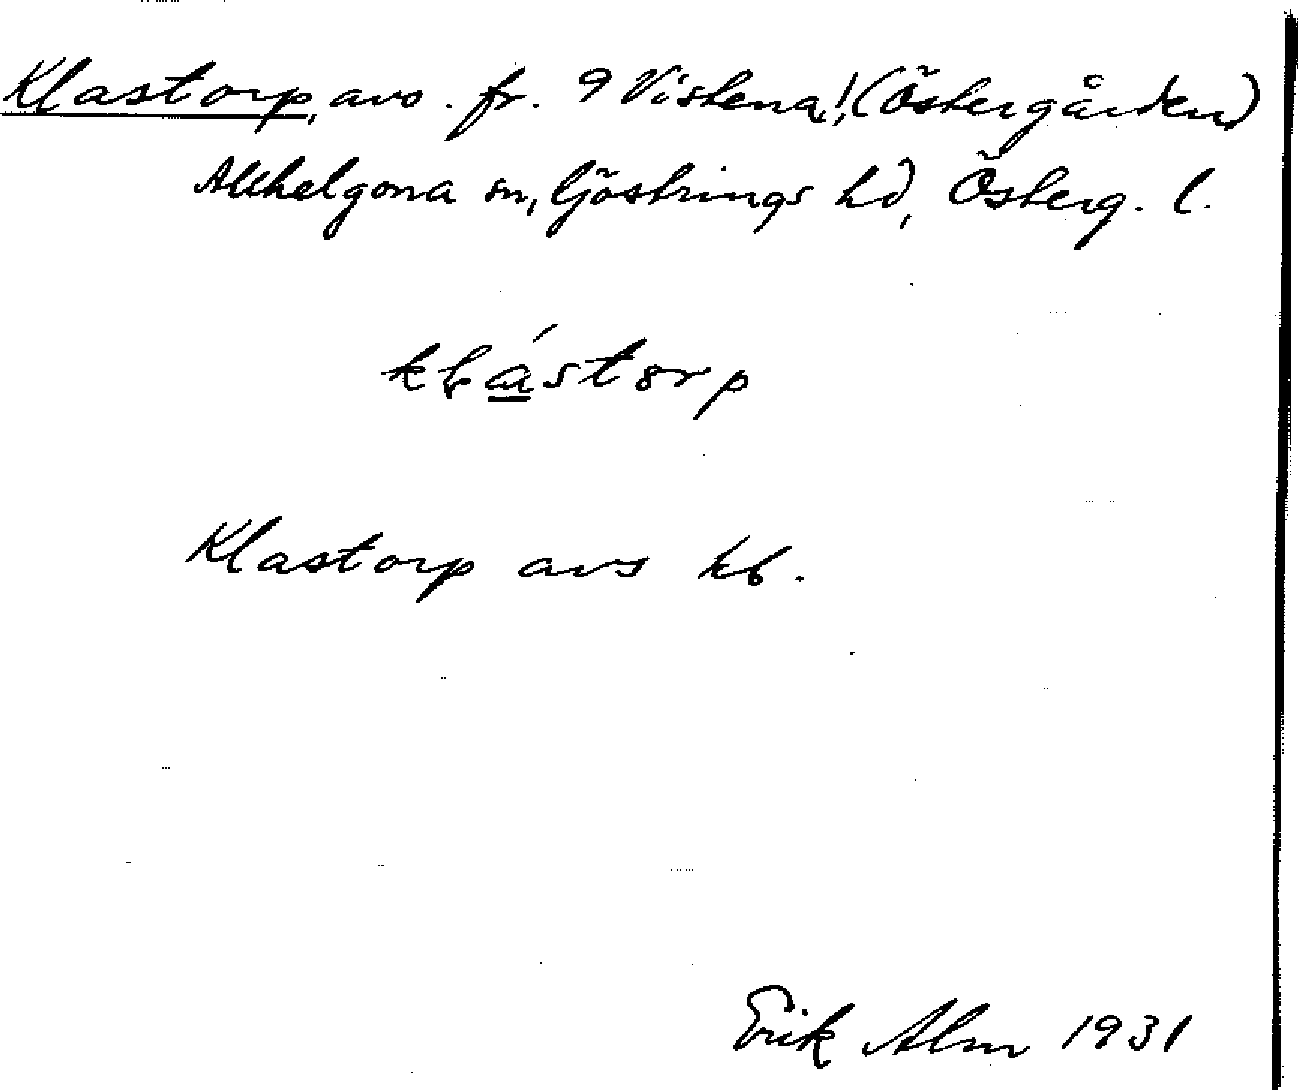 Klastorp, avs. fr. 9 Vistena, ! (Östergården)
Allhelgona sn, Göstrings hd, Österg. l.
klástorp
Klastorp avs kb.
Erik Alm 1931